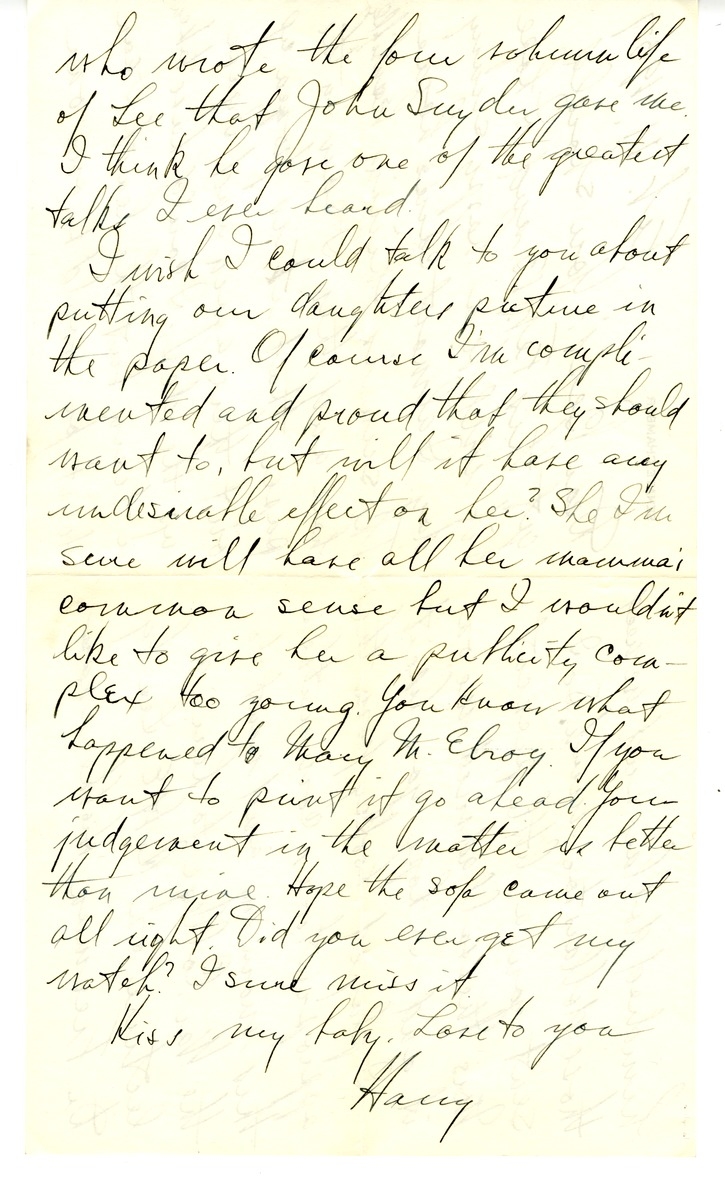 who wrote the four volumn life
of Lee that John Snyder gave me.
I think he gave one of the greatest
talks I ever heard.
I wish I could talk to you about
putting our daughters picture in
the paper. Of course I'm compli-
mented and proud that they should
want to, but will it have any
undesirable effect on her? She I'm
sure will have all her mamma's
common sense but I wouldn't
like to give her a publicity com-
plex too young. You know what
happened to Mary M. Elroy. If you
want to print it go ahead. Your
judgement in the matter is better
than mine. Hope the sofa came out
all right. Did you ever get my
watch? I sure miss it.
Kiss my baby. Love to you
Harry